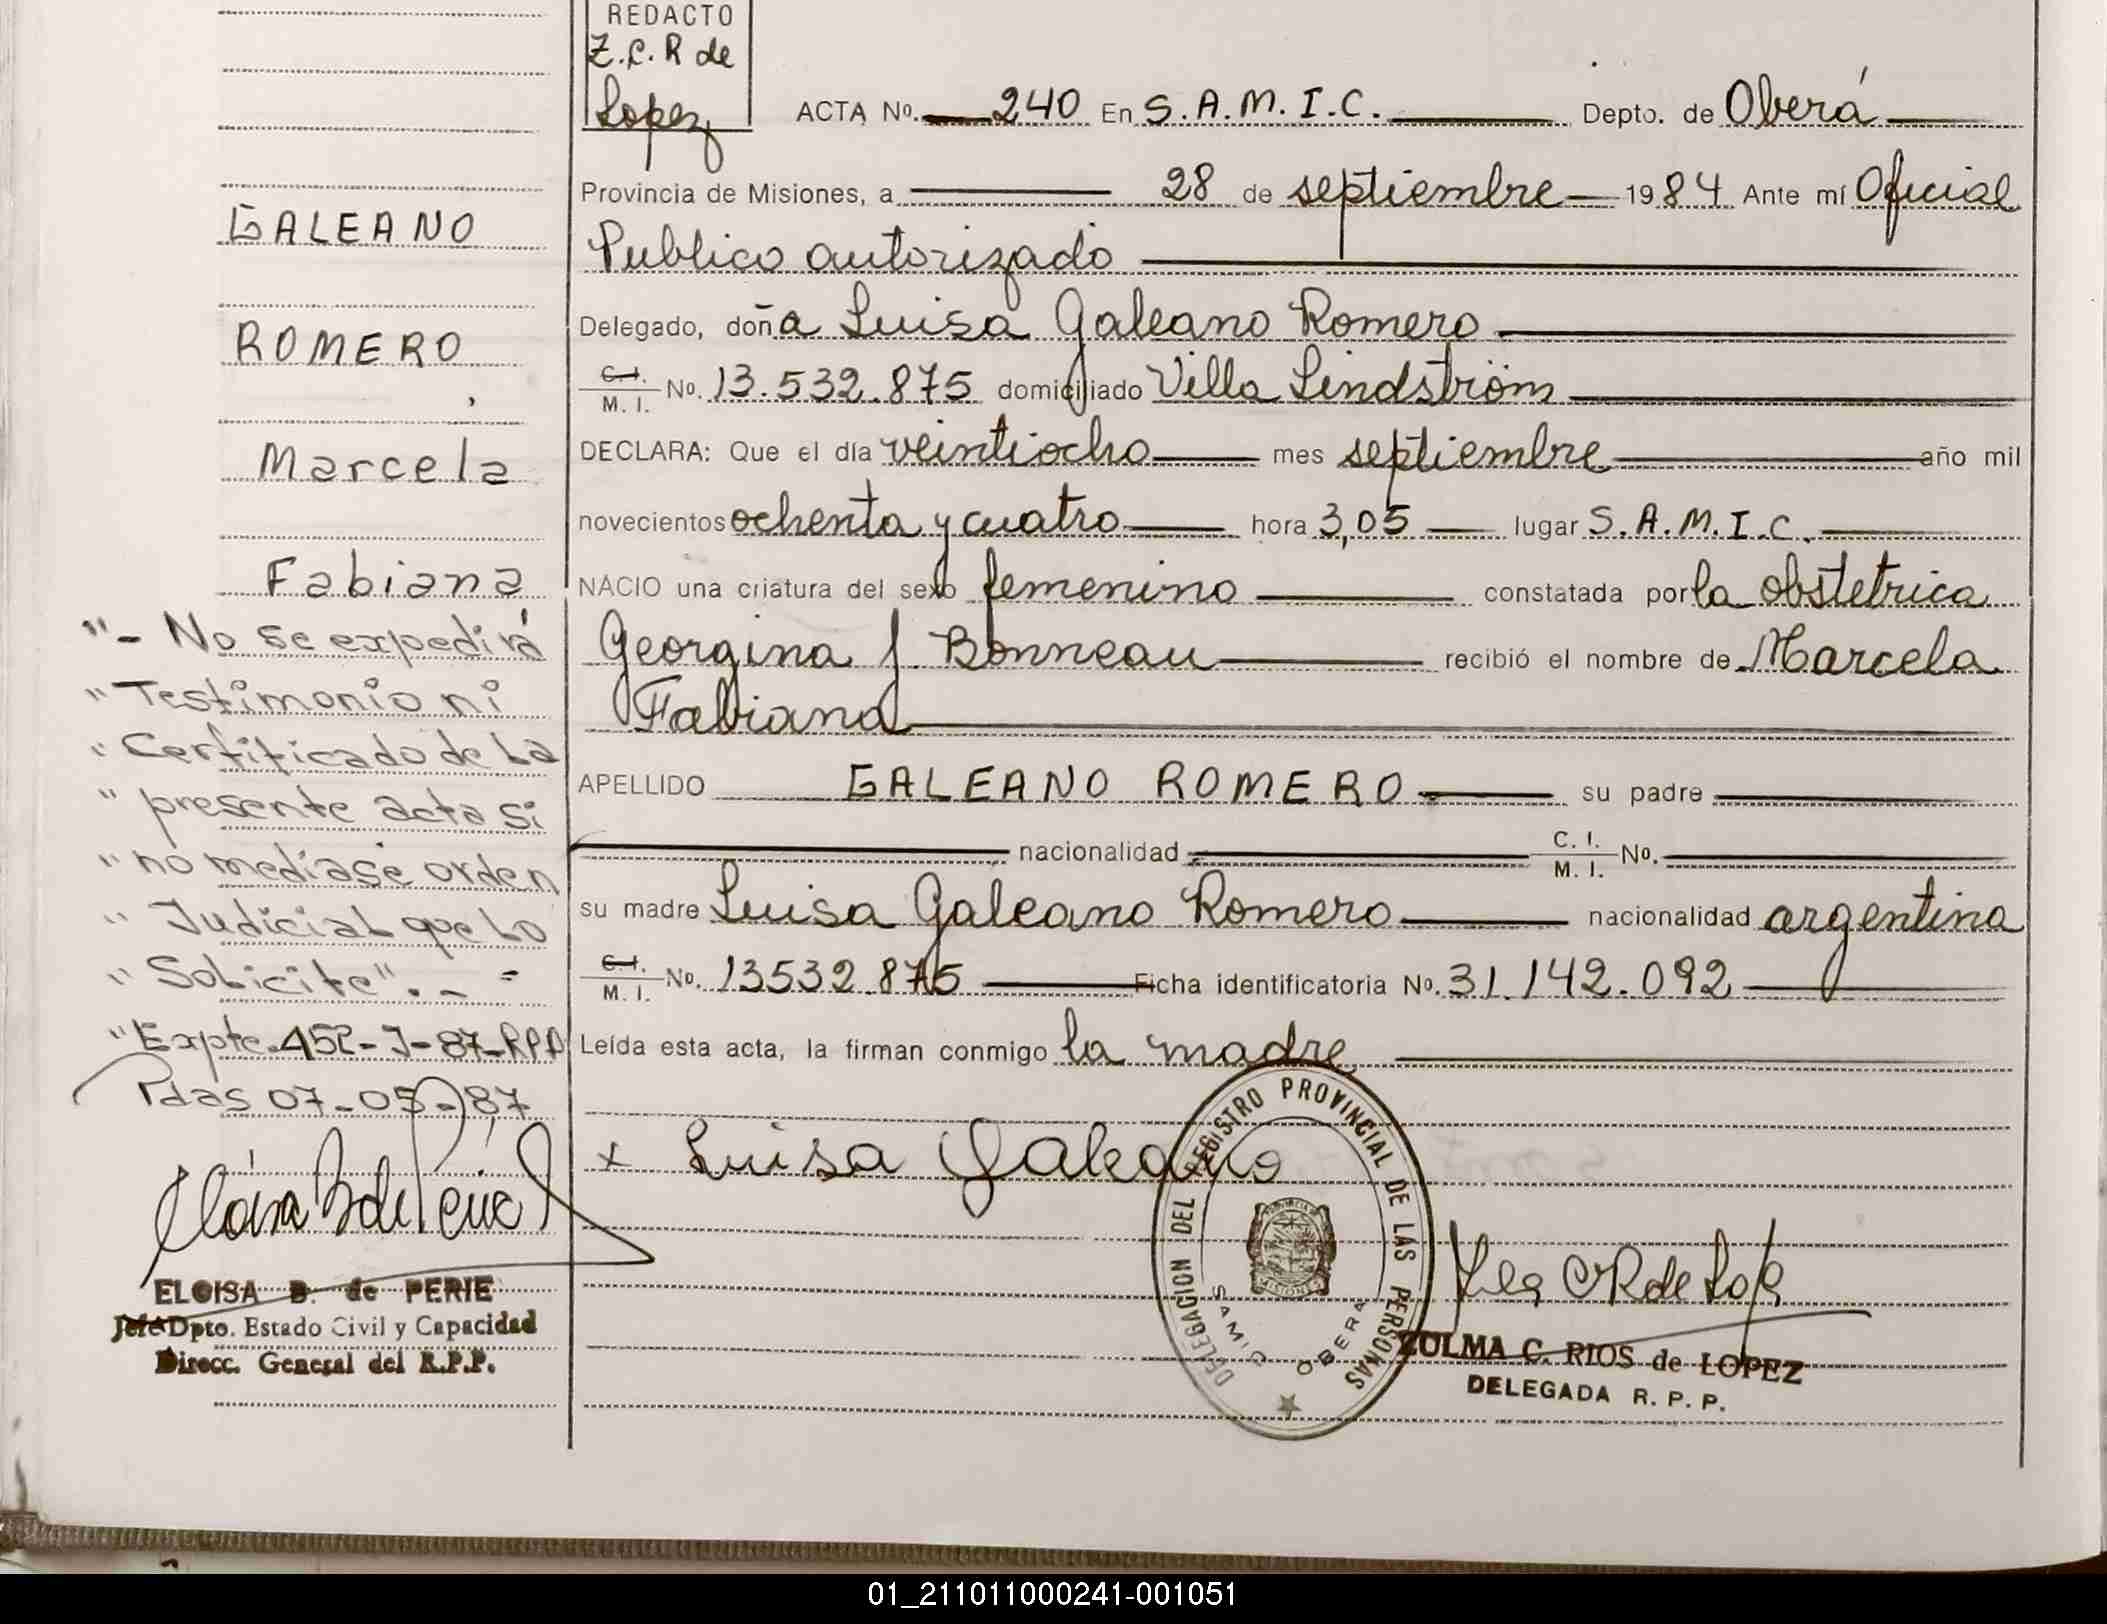 REDACTO
Z.C.R de
Lopez
ACTA No. 240 En S.A.M.I.C. Depto. de Oberá
Provincia de Misiones, a 28 de septiembre 1984 Ante mí Oficial
Publico autorizado
Delegado, doña Luisa Galeano Romero
C.I. M.I. No. 13.532.875 domiciliado Villa Lindström
DECLARA: Que el día veintiocho mes septiembre año mil
novecientos ochenta y cuatro hora 3,05 lugar S.A.M.I.C.
NACIO una criatura del sexo femenino constatada por la obstetrica
Georgina J Bonneau recibió el nombre de Marcela
Fabiana
APELLIDO GALEANO ROMERO su padre
nacionalidad C.I. M.I. No.
su madre Luisa Galeano Romero nacionalidad argentina
C.I. M.I. No. 13532.875 Ficha identificatoria No. 31.142.092
Leída esta acta, la firman conmigo la madre
x Luisa Galeano
DELEGACION DEL REGISTRO PROVINCIAL DE LAS PERSONAS
SAMIC OBERA
ZULMA C. RIOS de LOPEZ
DELEGADA R.P.P.
GALEANO
ROMERO
Marcela
Fabiana
"- No se expedirá
"Testimonio ni
"Certificado de La
"presente acta si
"no mediase orden
"Judicial que Lo
"Solicite".- =
"Expte. 452-J-87-RPP
Pdas 07-05-87
ELOISA B. de PERIE
Jefe Dpto. Estado Civil y Capacidad
Direcc. General del R.P.P.
01_211011000241-001051